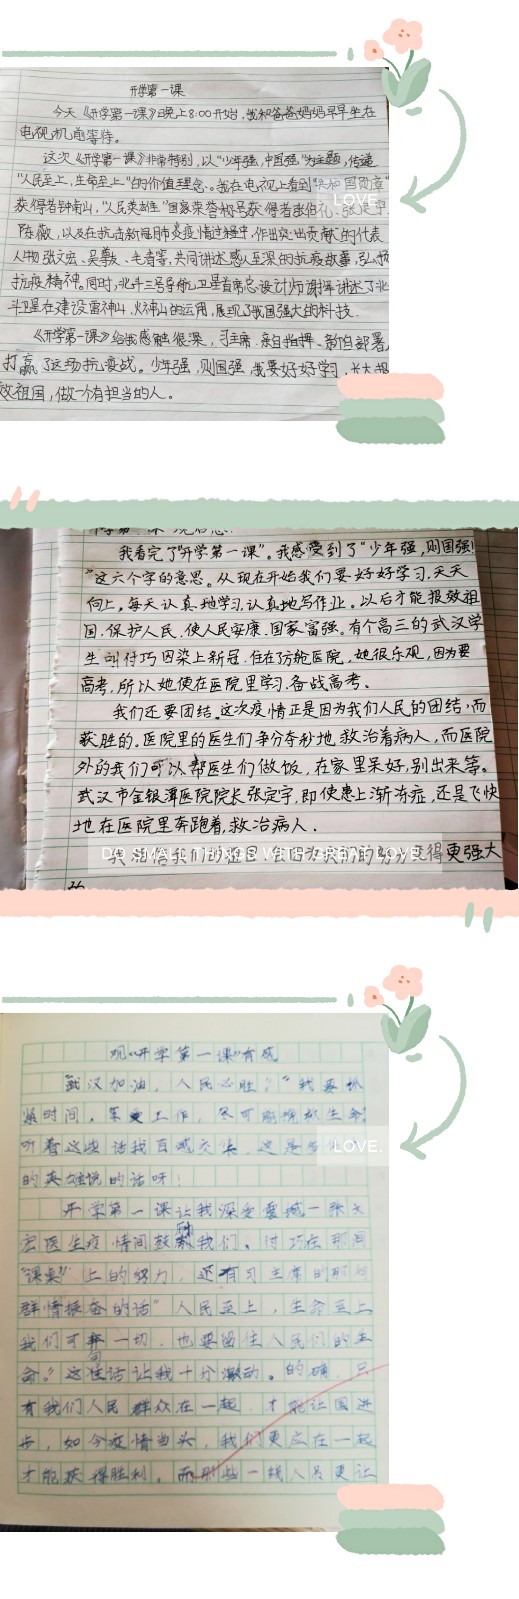 开学第一课
今天《开学第一课》晚上8:00开始,我和爸爸妈妈早早坐在
电视机前等待。
这次《开学第一课》非常特别,以“少年强,中国强”为主题,传递
“人民至上,生命至上”的价值理念。我在电视上看到“共和国勋章”
获得者钟南山,“人民英雄”国家荣誉称号获得者张伯礼、张定宇、
陈薇,以及在抗击新冠肺炎疫情过程中,作出突出贡献的代表
人物张文宏、吴尊友、毛青等,共同讲述感人至深的抗疫故事,弘扬
抗疫精神。同时,北斗三号导航卫星首席总设计师谢军讲述了北
斗卫星在建设雷神山,火神山的运用,展现了我国强大的科技.
《开学第一课》给我感触很深,习主席亲自指挥、亲自部署,
打赢了这场抗疫战。少年强,则国强,我要好好学习,长大报
效祖国,做一个有担当的人。
LOVE.
我看完了“开学第一课”。我感受到了“少年强,则国强!
”这六个字的意思。从现在开始我们要好好学习,天天
向上,每天认真地学习,认真地写作业。以后才能报效祖
国,保护人民,使人民安康,国家富强。有个高三的武汉学
生叫付巧因染上新冠,住在方舱医院,她很乐观,因为要
高考,所以她便在医院里学习,备战高考。
我们还要团结。这次疫情正是因为我们人民的团结,而
获胜的。医院里的医生们争分夺秒地救治着病人,而医院
外的我们可以帮医生们做饭,在家里呆好,别出来等。
武汉市金银潭医院院长张定宇,即使患上渐冻症,还是飞快
地在医院里奔跑着,救治病人.
我相信我们的祖国会因为我们的努力变得更强大
DO SMALL THINGS WITH GREAT LOVE.
观《开学第一课》有感
“武汉加油,人民必胜!”“我要抓
紧时间,
听着这些话我百感交集,这是
的英雄说的话呀!
开学第一课让我深受震撼一张文
宏医生疫情间鼓励我们,付巧在那间
“课桌”上的努力,还有习主席的那句
群情振奋的话“人民至上,生命至上
我们可弃一切,也要留住人民们的生
命。”这句话让我十分激动。的确,只
有我们人民群众在一起,才能让国进
步,如今疫情当头,我们更应在一起
才能获得胜利。而那些一线人员更让
LOVE.